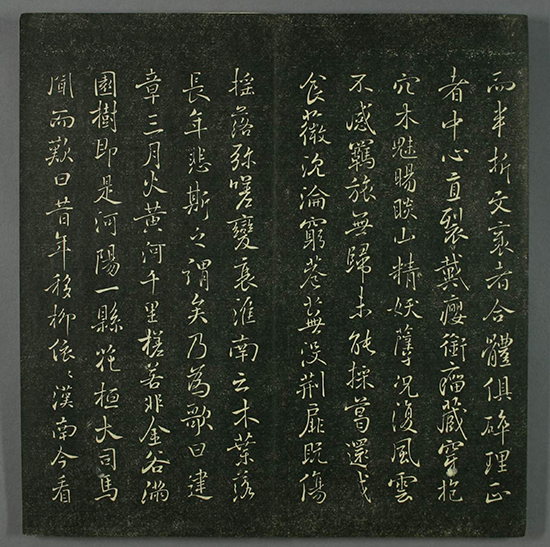 而半折文衺者合體俱碎理正
者中心直裂戴癭銜瘤藏穿抱
穴木魅睗睒山精妖孽況復風雲
不感羈旅無歸未能採葛還成
食薇沉淪窮巷蕪沒荊扉既傷
搖落彌嗟變衰淮南云木葉落
長年悲斯之謂矣乃為歌曰建
章三月火黃河千里槎若非金谷滿
園樹即是河陽一縣花桓大司馬
聞而歎曰昔年移柳依〻漢南今看